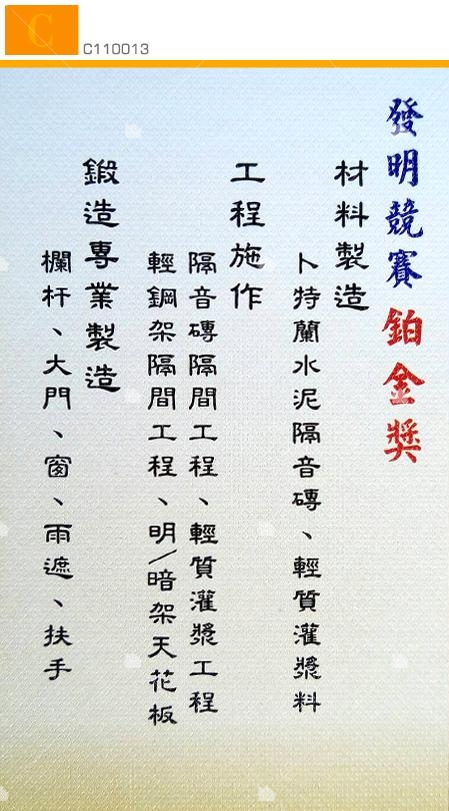 C
C110013
發明競賽鉑金獎
材料製造
卜特蘭水泥隔音磚、輕質灌漿料
工程施作
隔音磚隔間工程、輕質灌漿工程
輕鋼架隔間工程、明/暗架天花板
鍛造專業製造
欄杆、大門、窗、雨遮、扶手